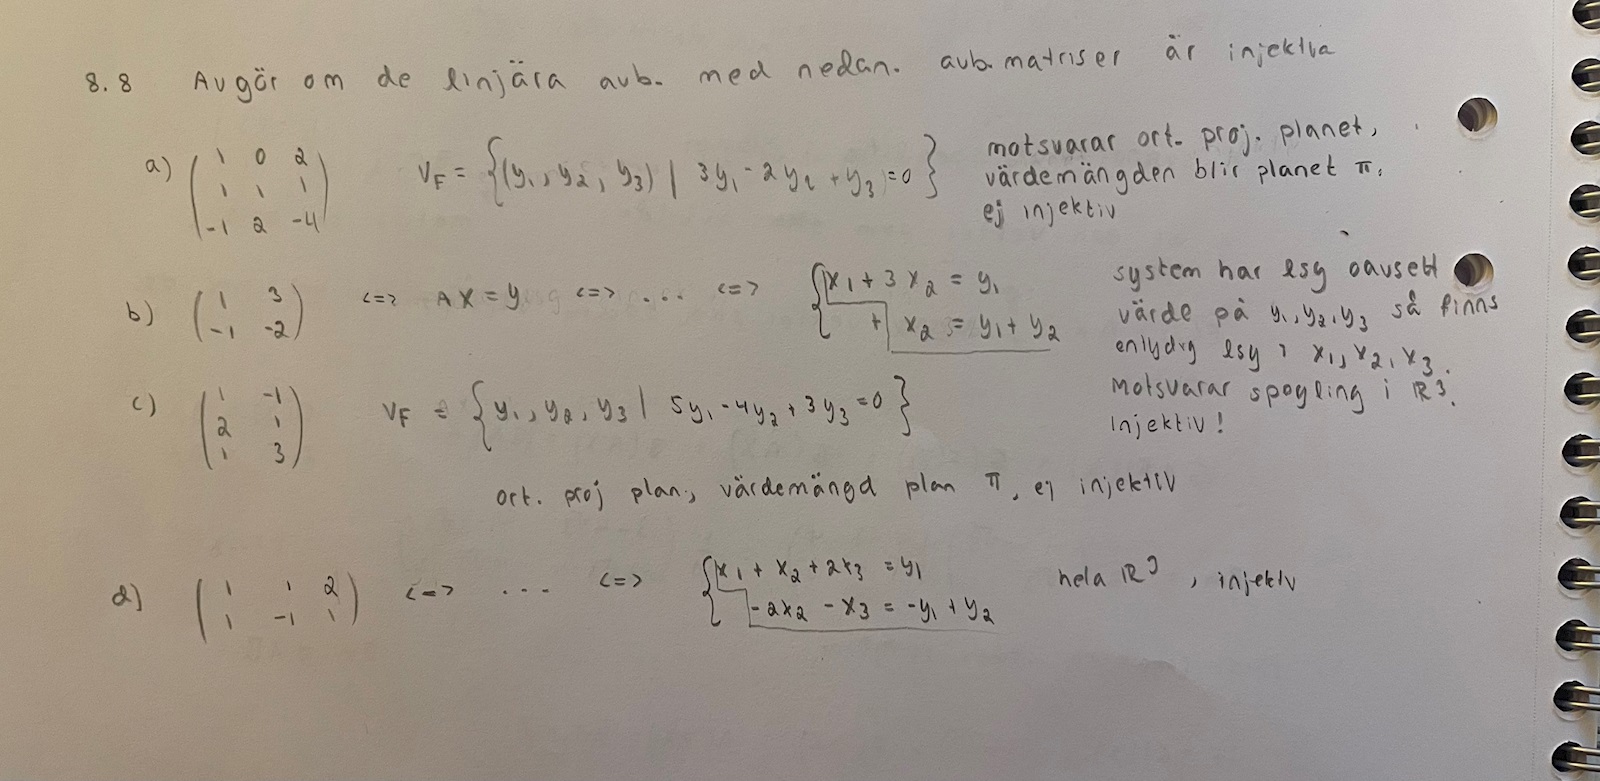 8.8 Avgör om de linjära avb. med nedan. avb.matriser är injektiva
a) ( 1 0 2 ; 1 1 1 ; -1 2 -4 ) V_F = {(y₁, y₂, y₃) | 3y₁ - 2y₂ + y₃ = 0}
motsvarar ort. proj. planet,
värdemängden blir planet π,
ej injektiv
b) ( 1 3 ; -1 -2 ) <=> AX = y <=> ... <=> { x₁ + 3x₂ = y₁
+ x₂ = y₁ + y₂
system har lsg oavsett
värde på y₁, y₂, y₃ så finns
entydig lsg i x₁, x₂, x₃.
Motsvarar spegling i R³.
Injektiv!
c) ( 1 -1 ; 2 1 ; 1 3 ) V_F = { y₁, y₂, y₃ | 5y₁ - 4y₂ + 3y₃ = 0 }
ort. proj plan., värdemängd plan π, ej injektiv
d) ( 1 1 2 ; 1 -1 1 ) <=> ... <=> { x₁ + x₂ + 2x₃ = y₁
-2x₂ - x₃ = -y₁ + y₂
hela R³, injektiv